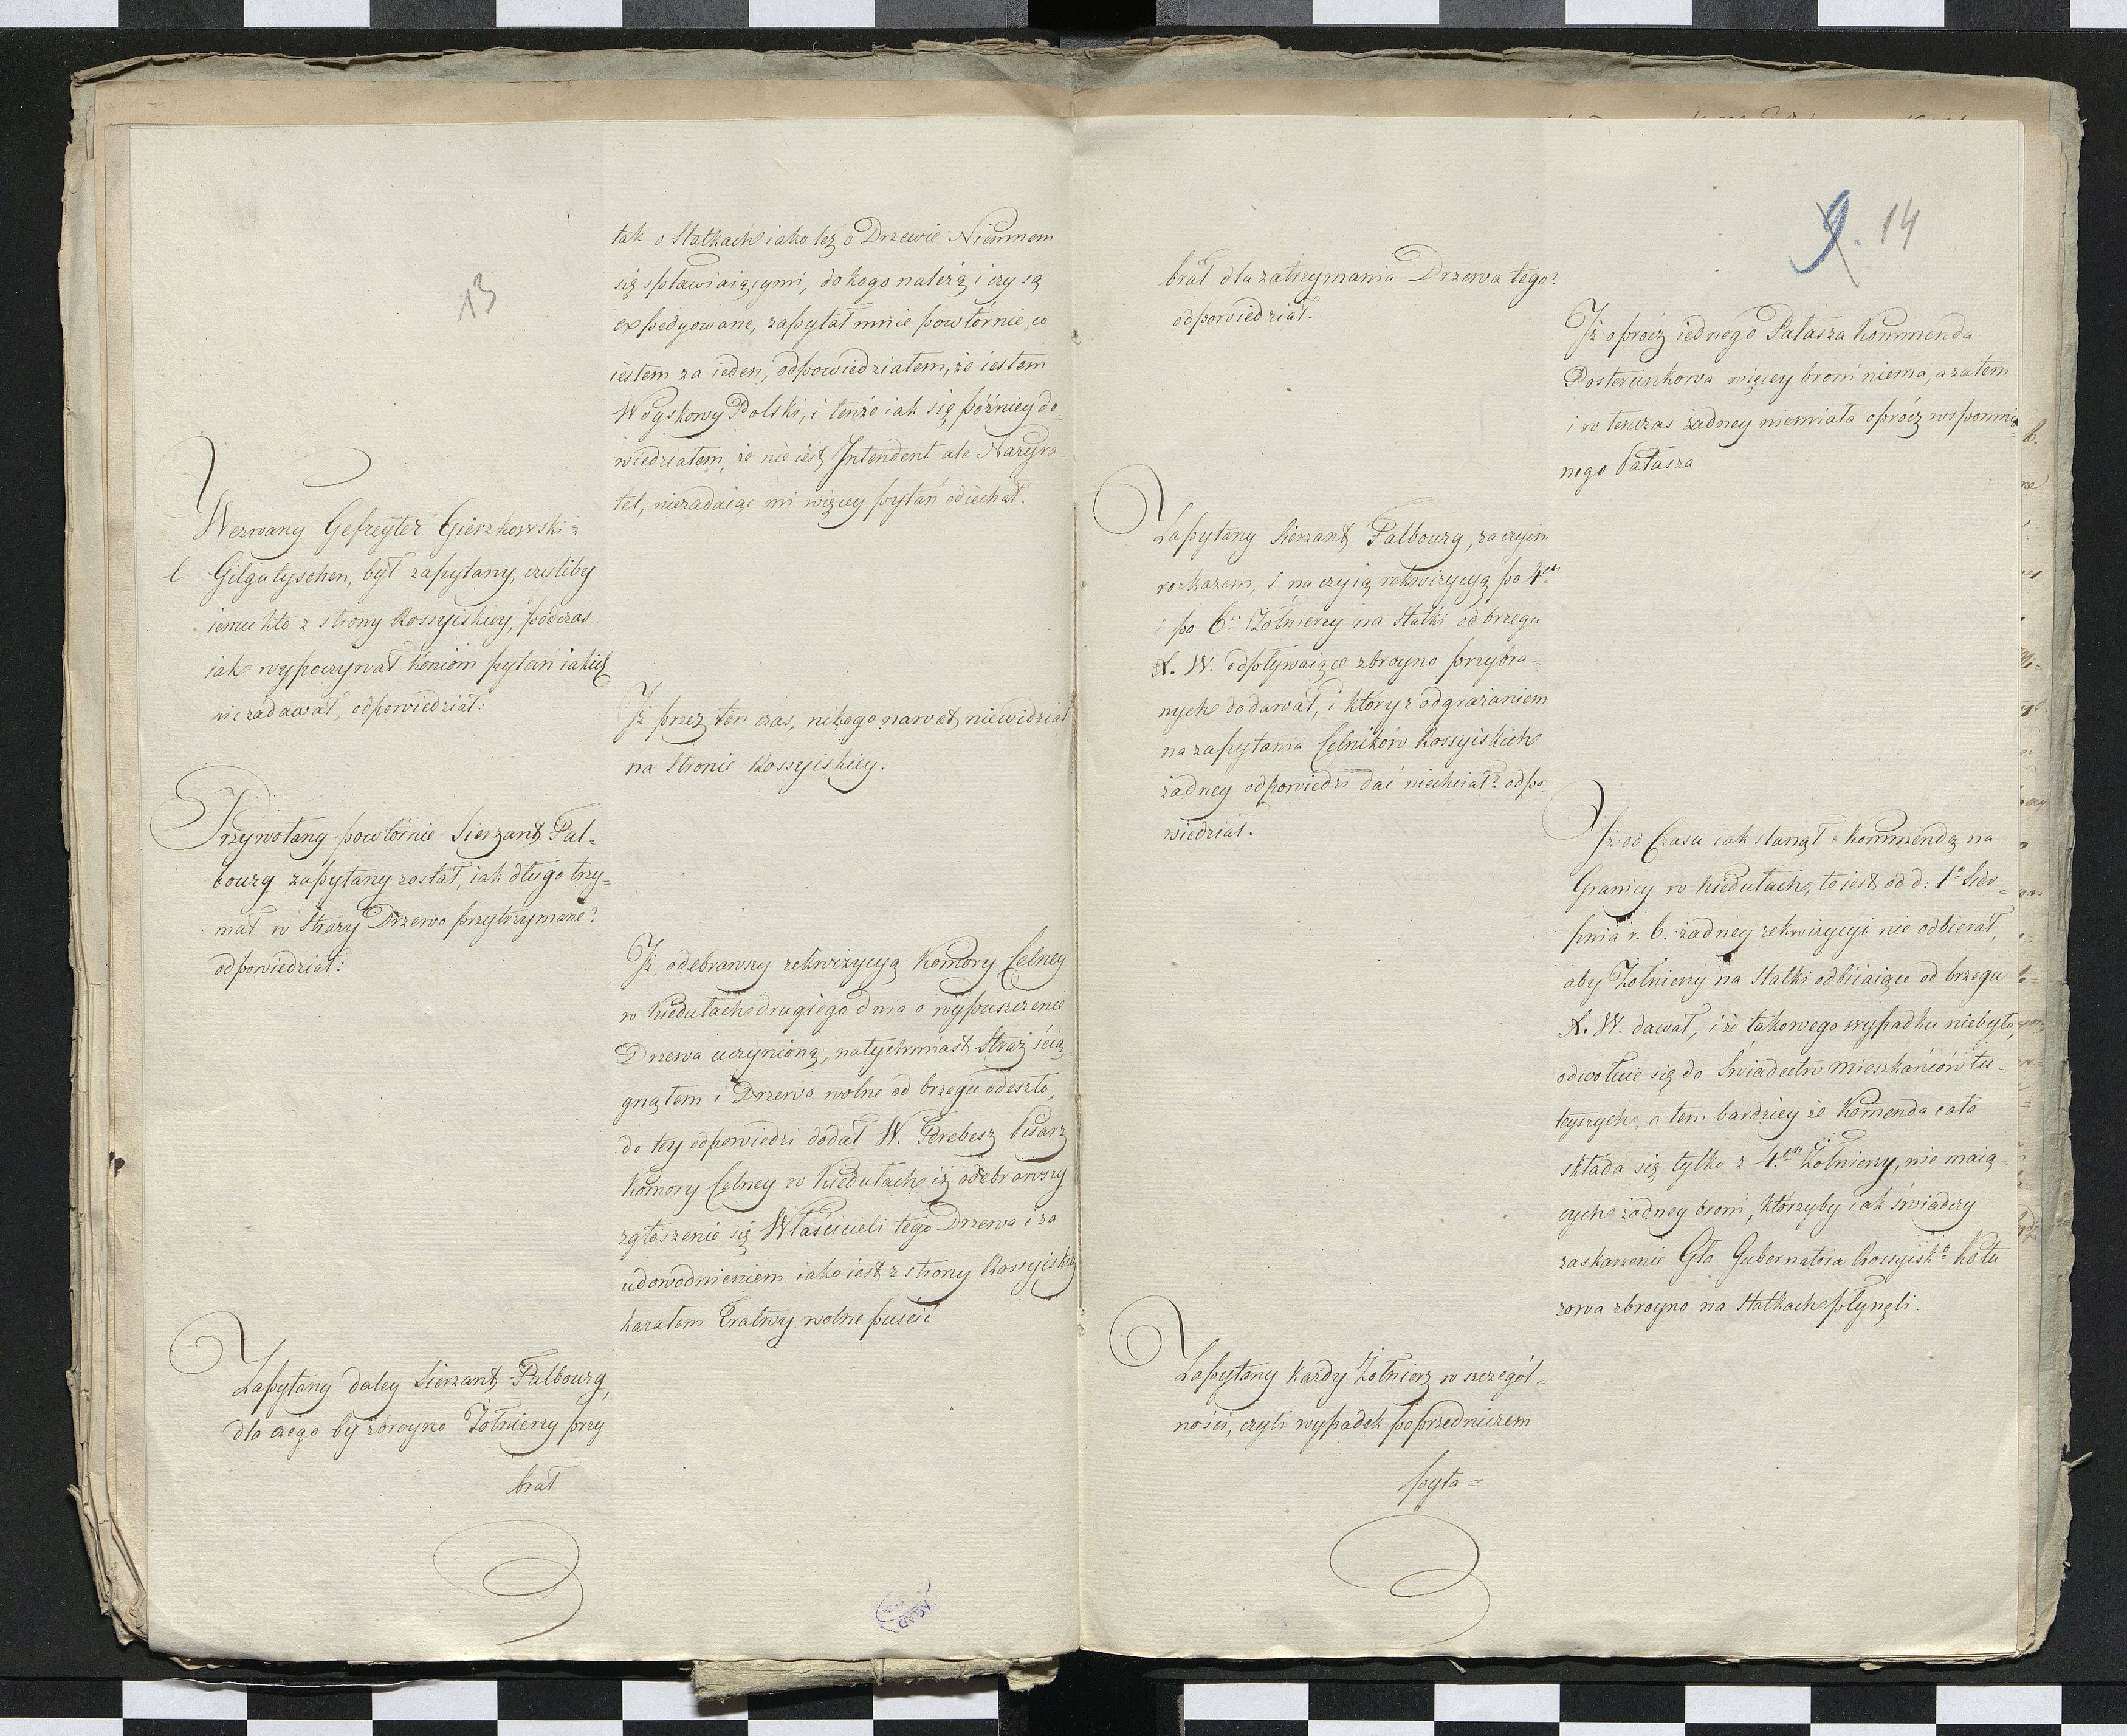 13
tak o Statkach iako też o Drzewie Niemnem
się spławiaiącymi, do kogo należą i czy są
expedyowane, zapytał mnie powtórnie, co
iestem za ieden, odpowiedziałem, że iestem
Woyskowy Polski, i tenże iak się późniey do-
wiedziałem, że nie iest Intendent ale Nazyra-
tel, niezadaiąc mi więcey pytań odiechał.
Wezwany Gefreyter Gierzkowski z
Gilgatyschen, był zapytany, czyliby
iemu kto z strony Rossyiskiey, podczas
iak wypoczywał koniom pytań iakich
nie zadawał, odpowiedział:
Iż przez ten czas, nikogo nawet niewidział
na Stronie Rossyiskiey.
Przywołany powtórnie Sierzant Pal-
bourg zapytany został, iak długo trzy-
mał w Straży Drzewo przytrzymane?
odpowiedział:
Iż odebrawszy rekwizycyą Komory Celney
w Kiedułach drugiego dnia o wypuszczenie
Drzewa uczynioną, natychmiast Straż ścią-
gnąłem i Drzewo wolne od brzegu odeszło,
do tey odpowiedzi dodał W. Pisarz
Komory Celney w Kiedułach iż odebrawszy
zgłoszenie się Właścicieli tego Drzewa i za
udowodnieniem iako iest z strony Rossyiskiey
kazałem Tratwy wolne puścić
Zapytany daley Sierzant Palbourg,
dla czego by zbroyno Żołnierzy przy
brał
9. 14
brał dla zatrzymania Drzewa tego?
odpowiedział.
Iż oprócz iednego Pałasza Kommenda
Posterunkowa więcey broni niema, a zatem
i w tenczas żadney niemiała oprócz wspomnio-
nego Pałasza
Zapytany Sierzant Palbourg, za czyim
rozkazem, i na czyią rekwizycyą po 4ch
i po 6ciu Żołnierzy na Statki od brzegu
X. W. odpływaiące zbroyno przybra-
nych dodawał, i którzy z odgrażaniem
na zapytania Celników Rossyiskich
żadney odpowiedzi dać niechciał? odpo-
wiedział.
Iż od Czasu iak stanął z Kommendą na
Granicy w Kiedułach, to iest od d: 1o Sier-
pnia r. b. żadney rekwizycyi nie odbierał,
aby Żołnierzy na Statki odbiiaiące od brzegu
X. W. dawał, i że takowego wypadku niebyło,
odwołuie się do Świadectw mieszkańców tu-
teyszych, a tem bardziey że Komenda cała
składa się tylko z 4ech Żołnierzy, nie maią-
cych żadney broni, którzyby iak świadczy
zaskarżenie Gła. Gubernatora Rossyisko Kotu
zowa zbroyno na Statkach płynęli.
Zapytany każdy Żołnierz w szczegól-
ności, czyli wypadek poprzedniczem
pyta=